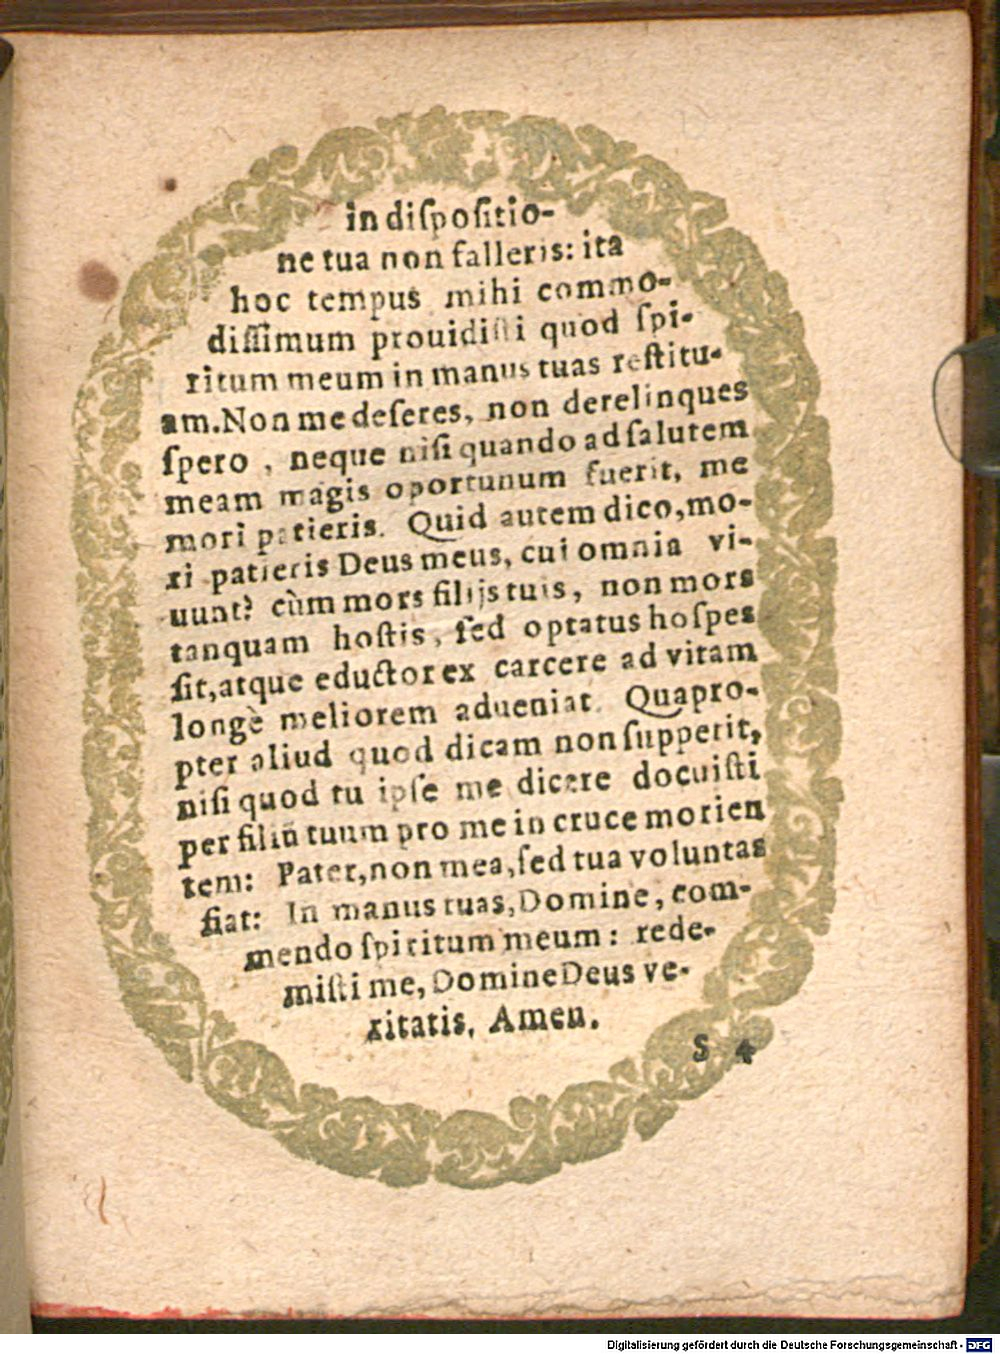 in dispositio-
ne tua non falleris: ita
hoc tempus mihi commo-
dissimum prouidisti quod spi-
ritum meum in manus tuas restitu-
am. Non me deseres, non derelinques
spero , neque nisi quando ad salutem
meam magis oportunum fuerit, me
mori patieris. Quid autem dico, mo-
ri patieris Deus meus, cui omnia vi-
uunt? cùm mors filijs tuis, non mors
tanquam hostis, sed optatus hospes
sit, atque eductor ex carcere ad vitam
longè meliorem adueniat. Quapro-
pter aliud quod dicam non supperit,
nisi quod tu ipse me dicere docuisti
per filiũ tuum pro me in cruce morien
tem: Pater, non mea, sed tua voluntas
fiat: In manus tuas, Domine, com-
mendo spiritum meum: rede-
misti me, Domine Deus ve-
ritatis, Amen.
S 4
Digitalisierung gefördert durch die Deutsche Forschungsgemeinschaft - DFG